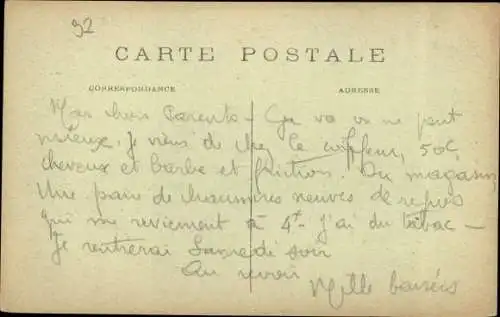 92
CARTE POSTALE
CORRESPONDANCE
ADRESSE
Mes chers Parents - Ça va on ne peut
mieux. Je viens de chez le coiffeur, 50c,
cheveux et barbe et friction. Du magasin
Une paire de chaussures neuves de repos
qui me reviennent à 4f - j'ai du tabac -
Je rentrerai Samedi soir
Au revoir
Mille baisers